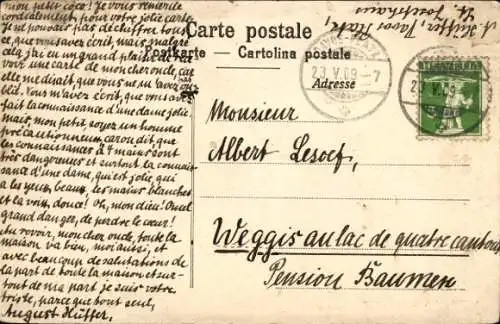 mon petit coco! Je vous remercie
cordialement pour votre jolie carte.
Je ne pouvais pas déchiffrer tout
ce, que vous avez écrit, mais malgré
cela, j'ai eu un grand plaisir de re-
voir une carte de mon cher onde, car
elle me disait, que vous ne m'avez pas ou-
blié. Vous m'avez écrit, que vous avez
fait la connaissance d'une dame jolie,
mais, mon petit soyez un homme
précautionneux, car on dit que
les connaissances à 4 mains sont
très dangereuses et surtout la connais-
sance d'une dame, qui est jolie, qui
a les yeux beaux, les mains blanches
et la voix douce! Oh, mon dieu! Quel
grand danger, de perdre le cœur!
Au revoir, mon cher onde, toute la
maison va bien, moi aussi, et
avec beaucoup de salutations de
la part de toute la maison et sur-
tout de ma part je suis votre
triste, parce que tout seul,
August Hüffer.
Carte postale
Postkarte — Cartolina postale
Adresse
23.V.09-7
23.V.09
HELVETIA
A. Hüffer,
Monsieur
Albert Lesoef,
Weggis au lac de quatre cantons
Pension Baumen